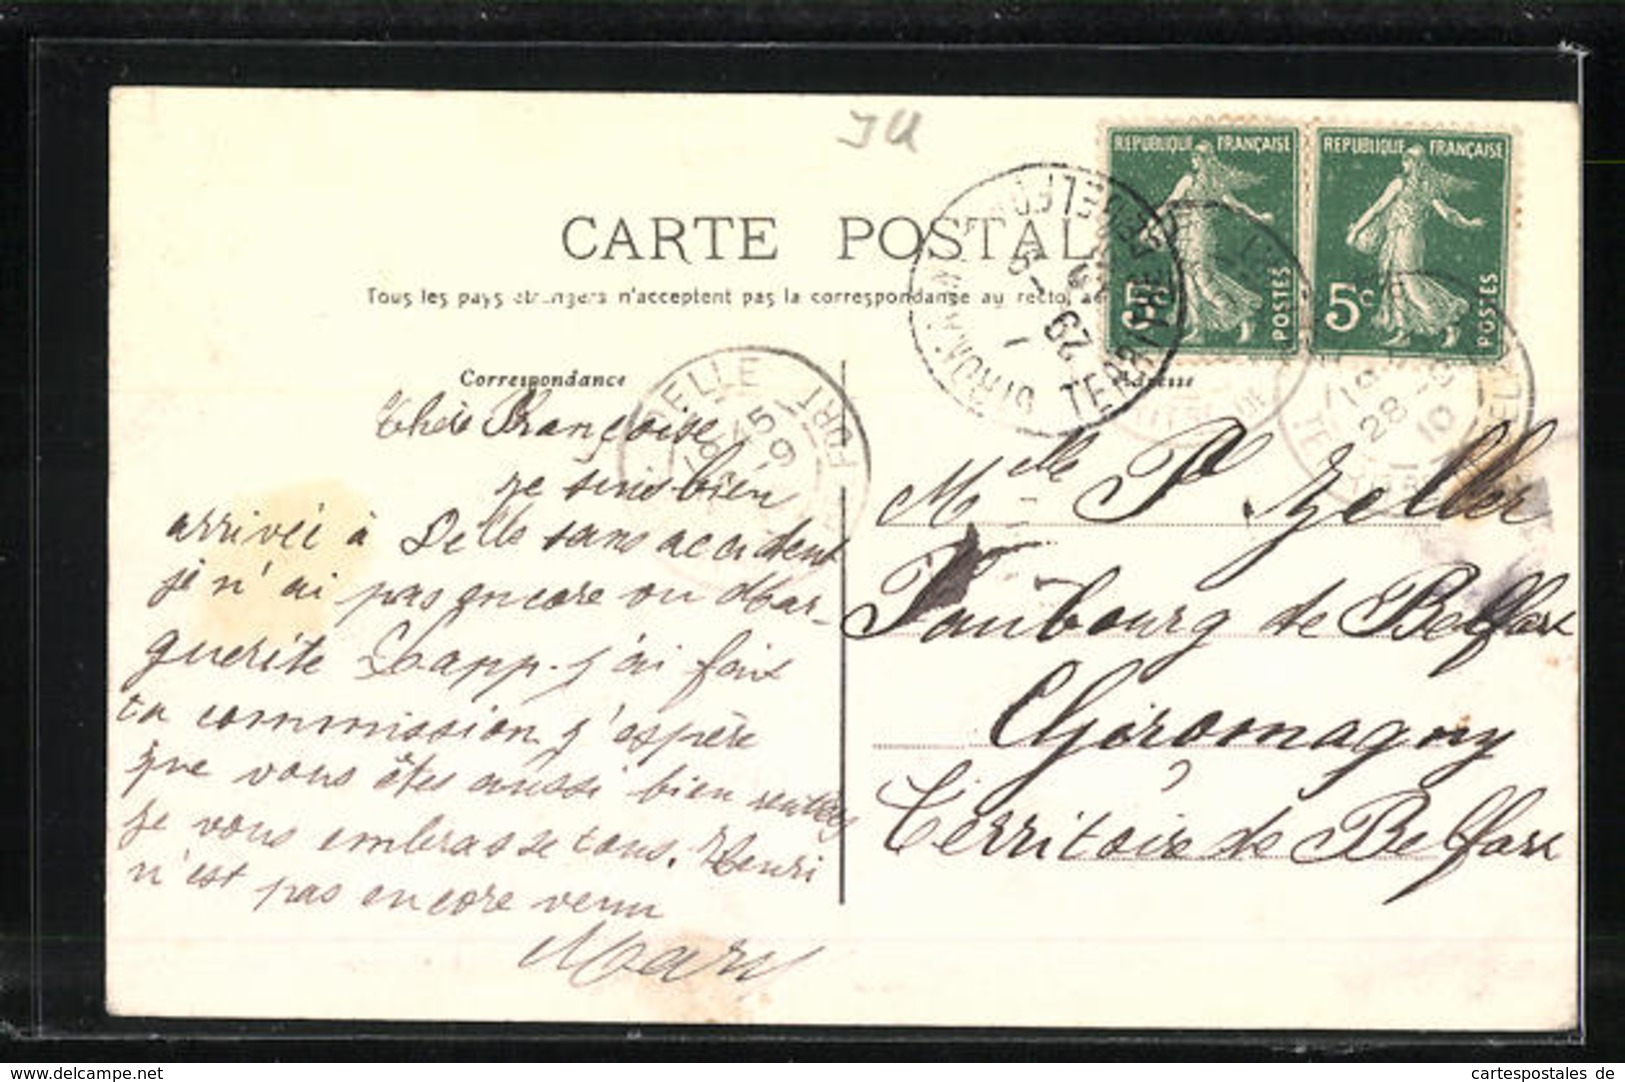 JU
REPUBLIQUE FRANÇAISE
5c
POSTES
REPUBLIQUE FRANÇAISE
5c
POSTES
CARTE POSTALE
Tous les pays étrangers n'acceptent pas la correspondance au recto
Correspondance
Adresse
DELLE
28 -9
10
29 -9
Chère Françoise
je suis bien
arrivée à Delle sans accident
je n'ai pas encore vu Mar-
guerite Lapp. j'ai fait
ta commission j'espère
que vous êtes aussi bien rentrés
je vous embrasse tous. Henri
n'est pas encore venu
Mary
Melle Zeller
Faubourg de Belfort
Giromagny
Territoire de Belfort
www.delcampe.net
cartespostales de